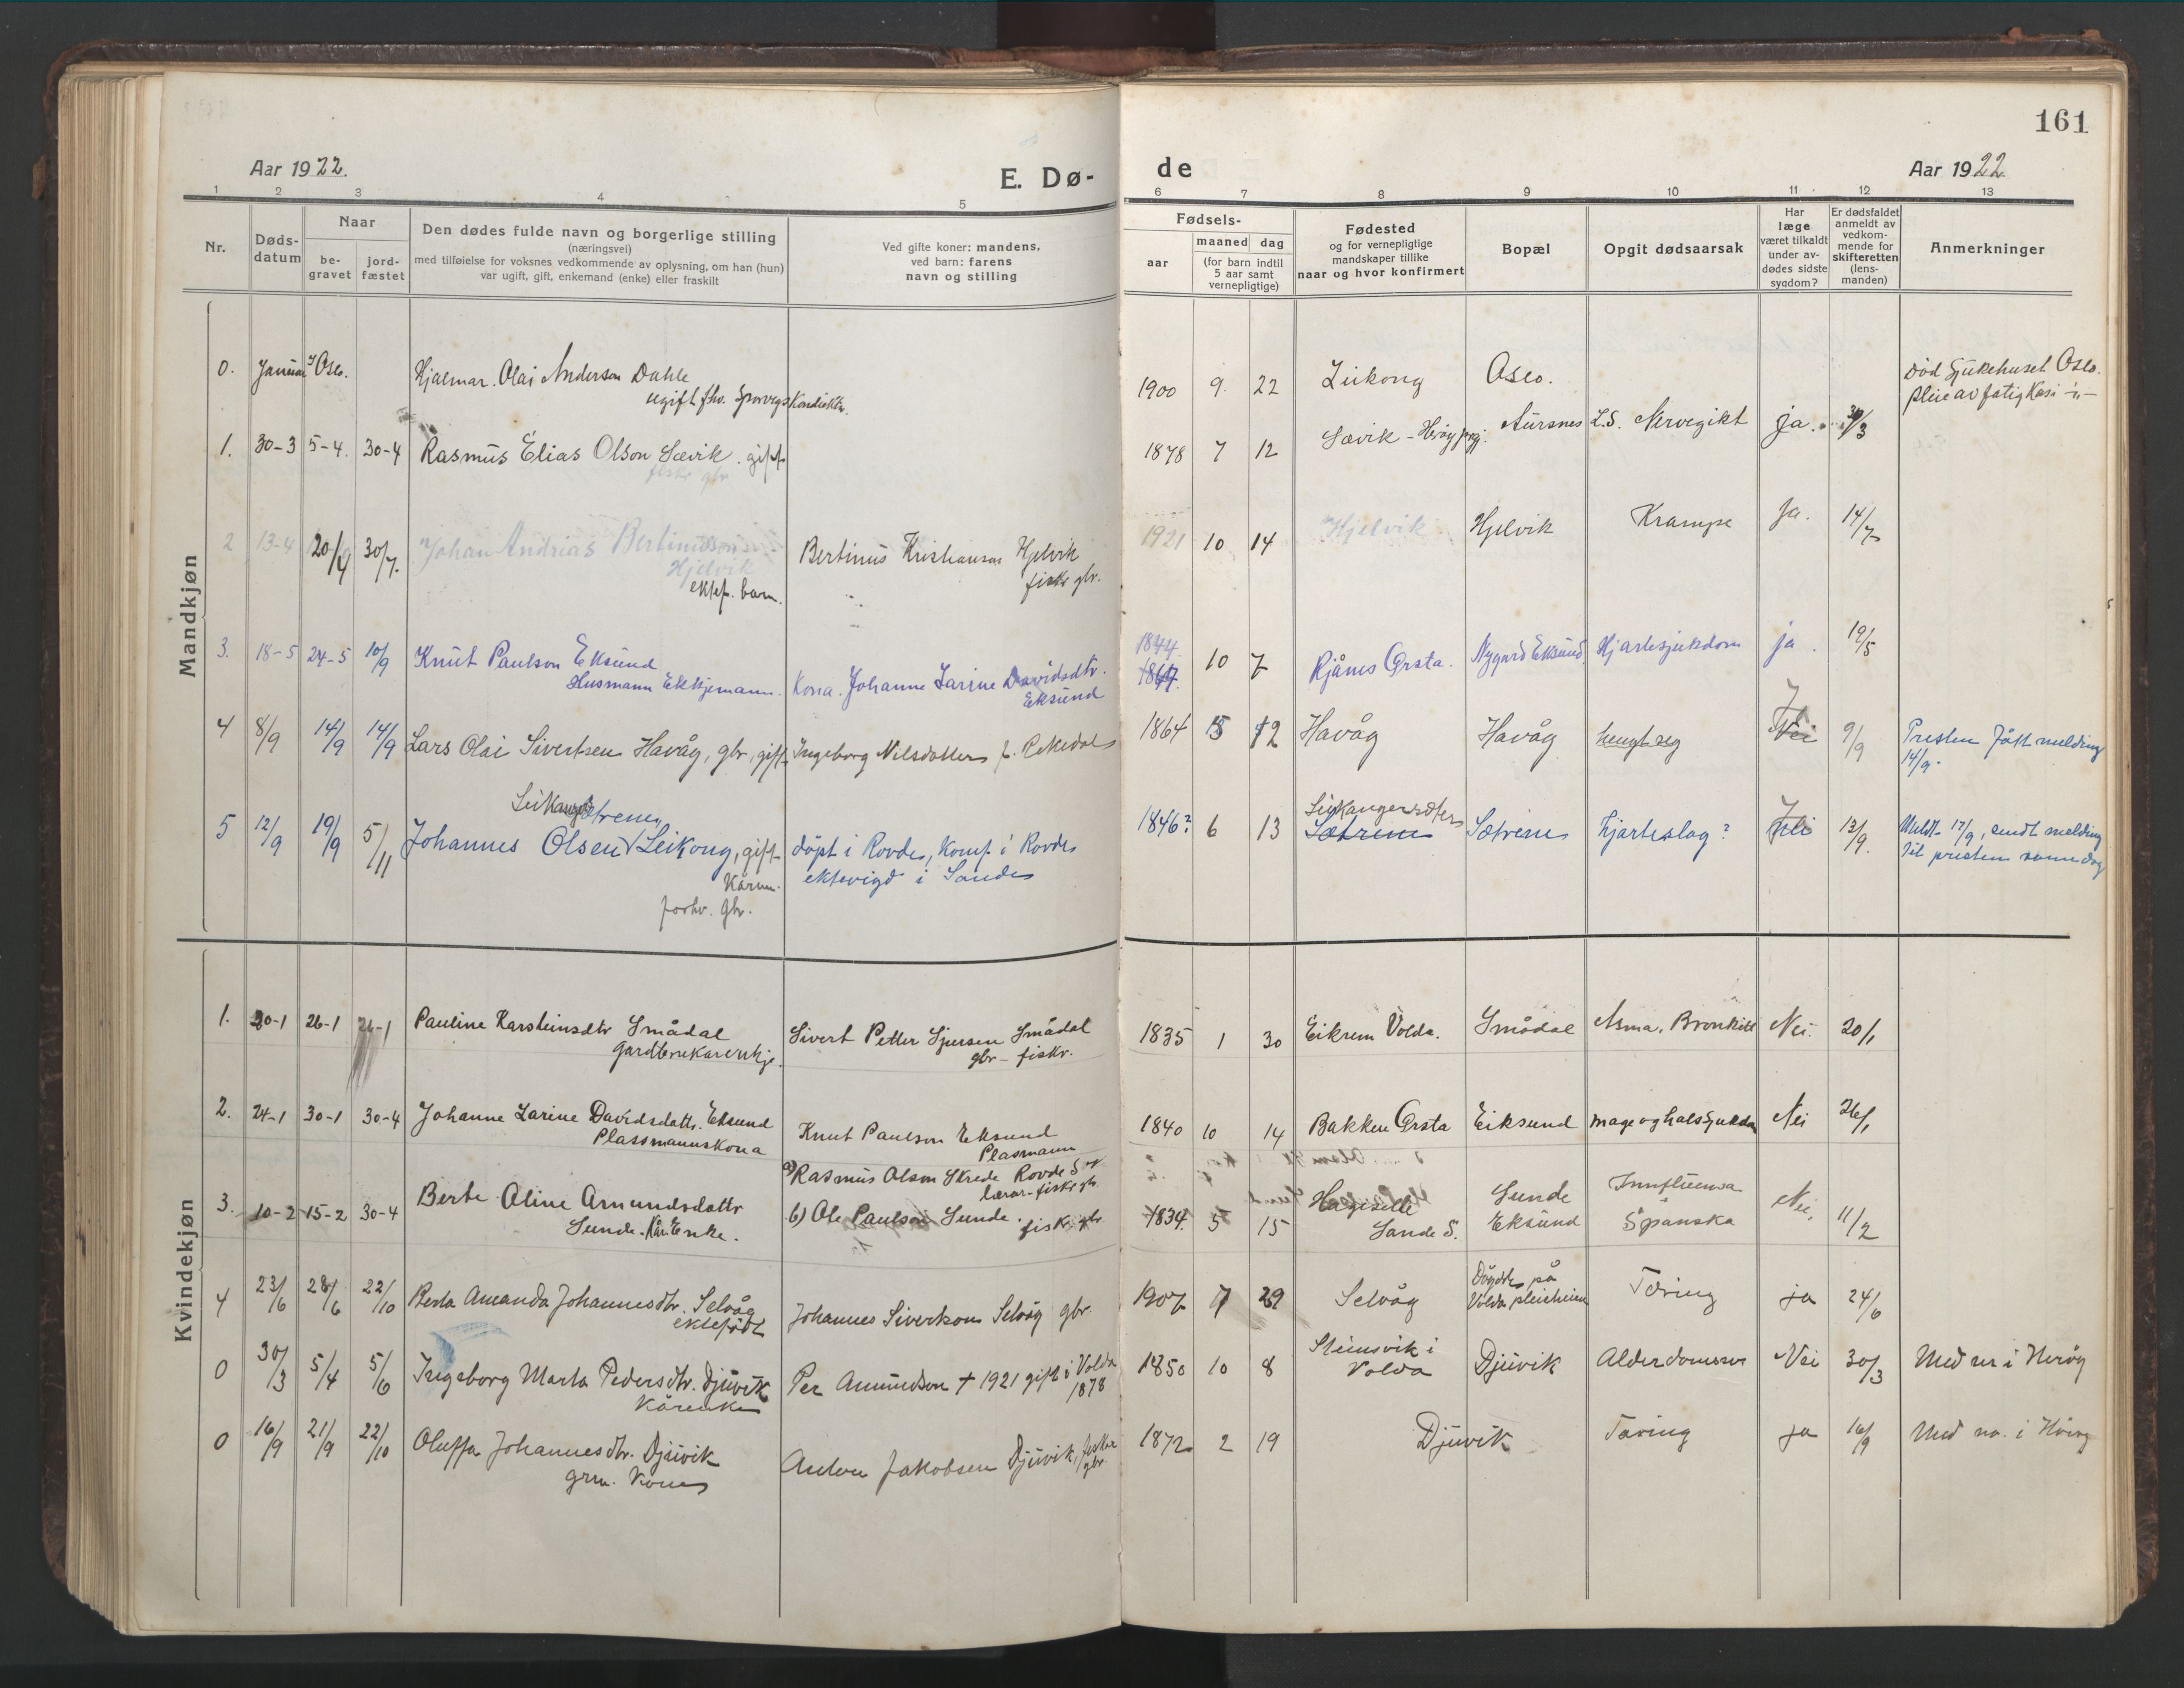 161
Aar 1922.
E. Dø-
de
Aar 1922
1 2 3 4 5 6 7 8 9 10 11 12 13
Nr.
Døds-
datum
Naar
be-
gravet
jord-
fæstet
Den dødes fulde navn og borgerlige stilling
(næringsvei)
med tilføielse for voksnes vedkommende av oplysning, om han (hun)
var ugift, gift, enkemand (enke) eller fraskilt
Ved gifte koner: mandens,
ved barn: farens
navn og stilling
Fødsels-
aar
maaned dag
(for barn indtil
5 aar samt
vernepligtige)
Fødested
og for vernepligtige
mandskaper tillike
naar og hvor konfirmert
Bopæl
Opgit dødsaarsak
Har
læge
været tilkaldt
under av-
dødes sidste
sygdom?
Er dødsfaldet
anmeldt av
vedkom-
mende for
skifteretten
(lens-
manden)
Anmerkninger
Mandkjøn
0. Januar i Oslo. Hjalmar Olai Anderson Dahle 1900 9. 22 Leikong Oslo. Død Sjukehuset Oslo.
ugift fhv. Sporvegskonduktør. pleie av fatigkasi -"-
1. 30-3 5-4. 30-4 Rasmus Elias Olson Sævik. gift 1878 7 12 Sævik - Herøy prgj. Aursnes L.S. Nervegikt ja. 30/3
fiskr gbr
2 13-4 20/4 30/7. Johan Andrias Bertinusson Bertinus Kristianson Hjelvik 1921 10 14 Hjelvik Hjelvik Krampe Ja. 14/7
Hjelvik fiskr gbr.
ektef. barn.
3. 18-5 24-5 10/9 Knut Paulson Eksund Kona. Johanne Larine Davidsdtr. 1844 1847. 10 7 Rjånes Ørsta. Nygard Eksund Hjartesjukdom ja. 19/5
Husmann Ekkjemann. Eksund
4 8/9 14/9 14/9 Lars Olai Sivertsen Havåg, gbr, gift Ingeborg Nilsdatter f. Rekedal 1864 5 12 Havåg Havåg hengt seg Nei 9/9 Presten fått melding
14/9.
Leikangsætrene
5 12/9 19/9 5/11 Johannes Olsen Leikong, gift døpt i Rovde, konf. i Rovde 1846? 6 13 Leikangersæter Sætrene Sætrene hjarteslag? Nei 13/9. Meldt 17/9, sendt melding
Kårm. ektevigd i Sande til presten same dag
forhv. gbr.
Kvindekjøn
1. 20-1 26-1 26-1 Pauline Karsteinsdtr Smådal Sivert Petter Sjursen Smådal 1835 1 30 Eikrem Volda. Smådal Asma, Bronkitt Nei. 20/1
Gardbrukarenkje. gbr - fiskr.
2. 24-1 30-1 30-4 Johanne Larine Davidsdottr. Eksund Knut Paulson Eksund 1840 10 14 Bakken Ørsta Eiksund mage og halssjukdom Nei 26/1
Plassmannskona Plasmann
3. 10-2 15-2 30-4 Berte Oline Amundsdottr a) Rasmus Olson Skrede Rovde S. 1834. 5 15 Hageselle Sunde Innfluensa Nei. 11/2
Sunde. Kår Enke. lærar - fiskr gbr. Sande S. Eksund Spanska
b) Ole Paulson Sunde. fiskr gbr
4 23/6 28/6 22/10 Berta Amanda Johannesdtr. Selvåg Johannes Sivertson Selvåg gbr. 1907 7 29 Selvåg Døydde på Tæring ja 24/6
ektefødt Volda pleieheim
0 30/3 5/4 5/6 Ingeborg Marta Pedersdtr. Djuvik Per Amundson † 1921 gift i Volda 1850 10 8 Steinsvik i Djuvik Alderdomssvr Nei 30/3 Med nr i Herøy
Kårenke 1878 Volda
0 16/9 21/9 22/10 Oluffa Johannesdtr. Djuvik Anton Jakobsen Djuvik, fiskar 1872 2 19 Djuvik Tæring ja 16/9 Med nr. i Herøy
grm. kone gbr.